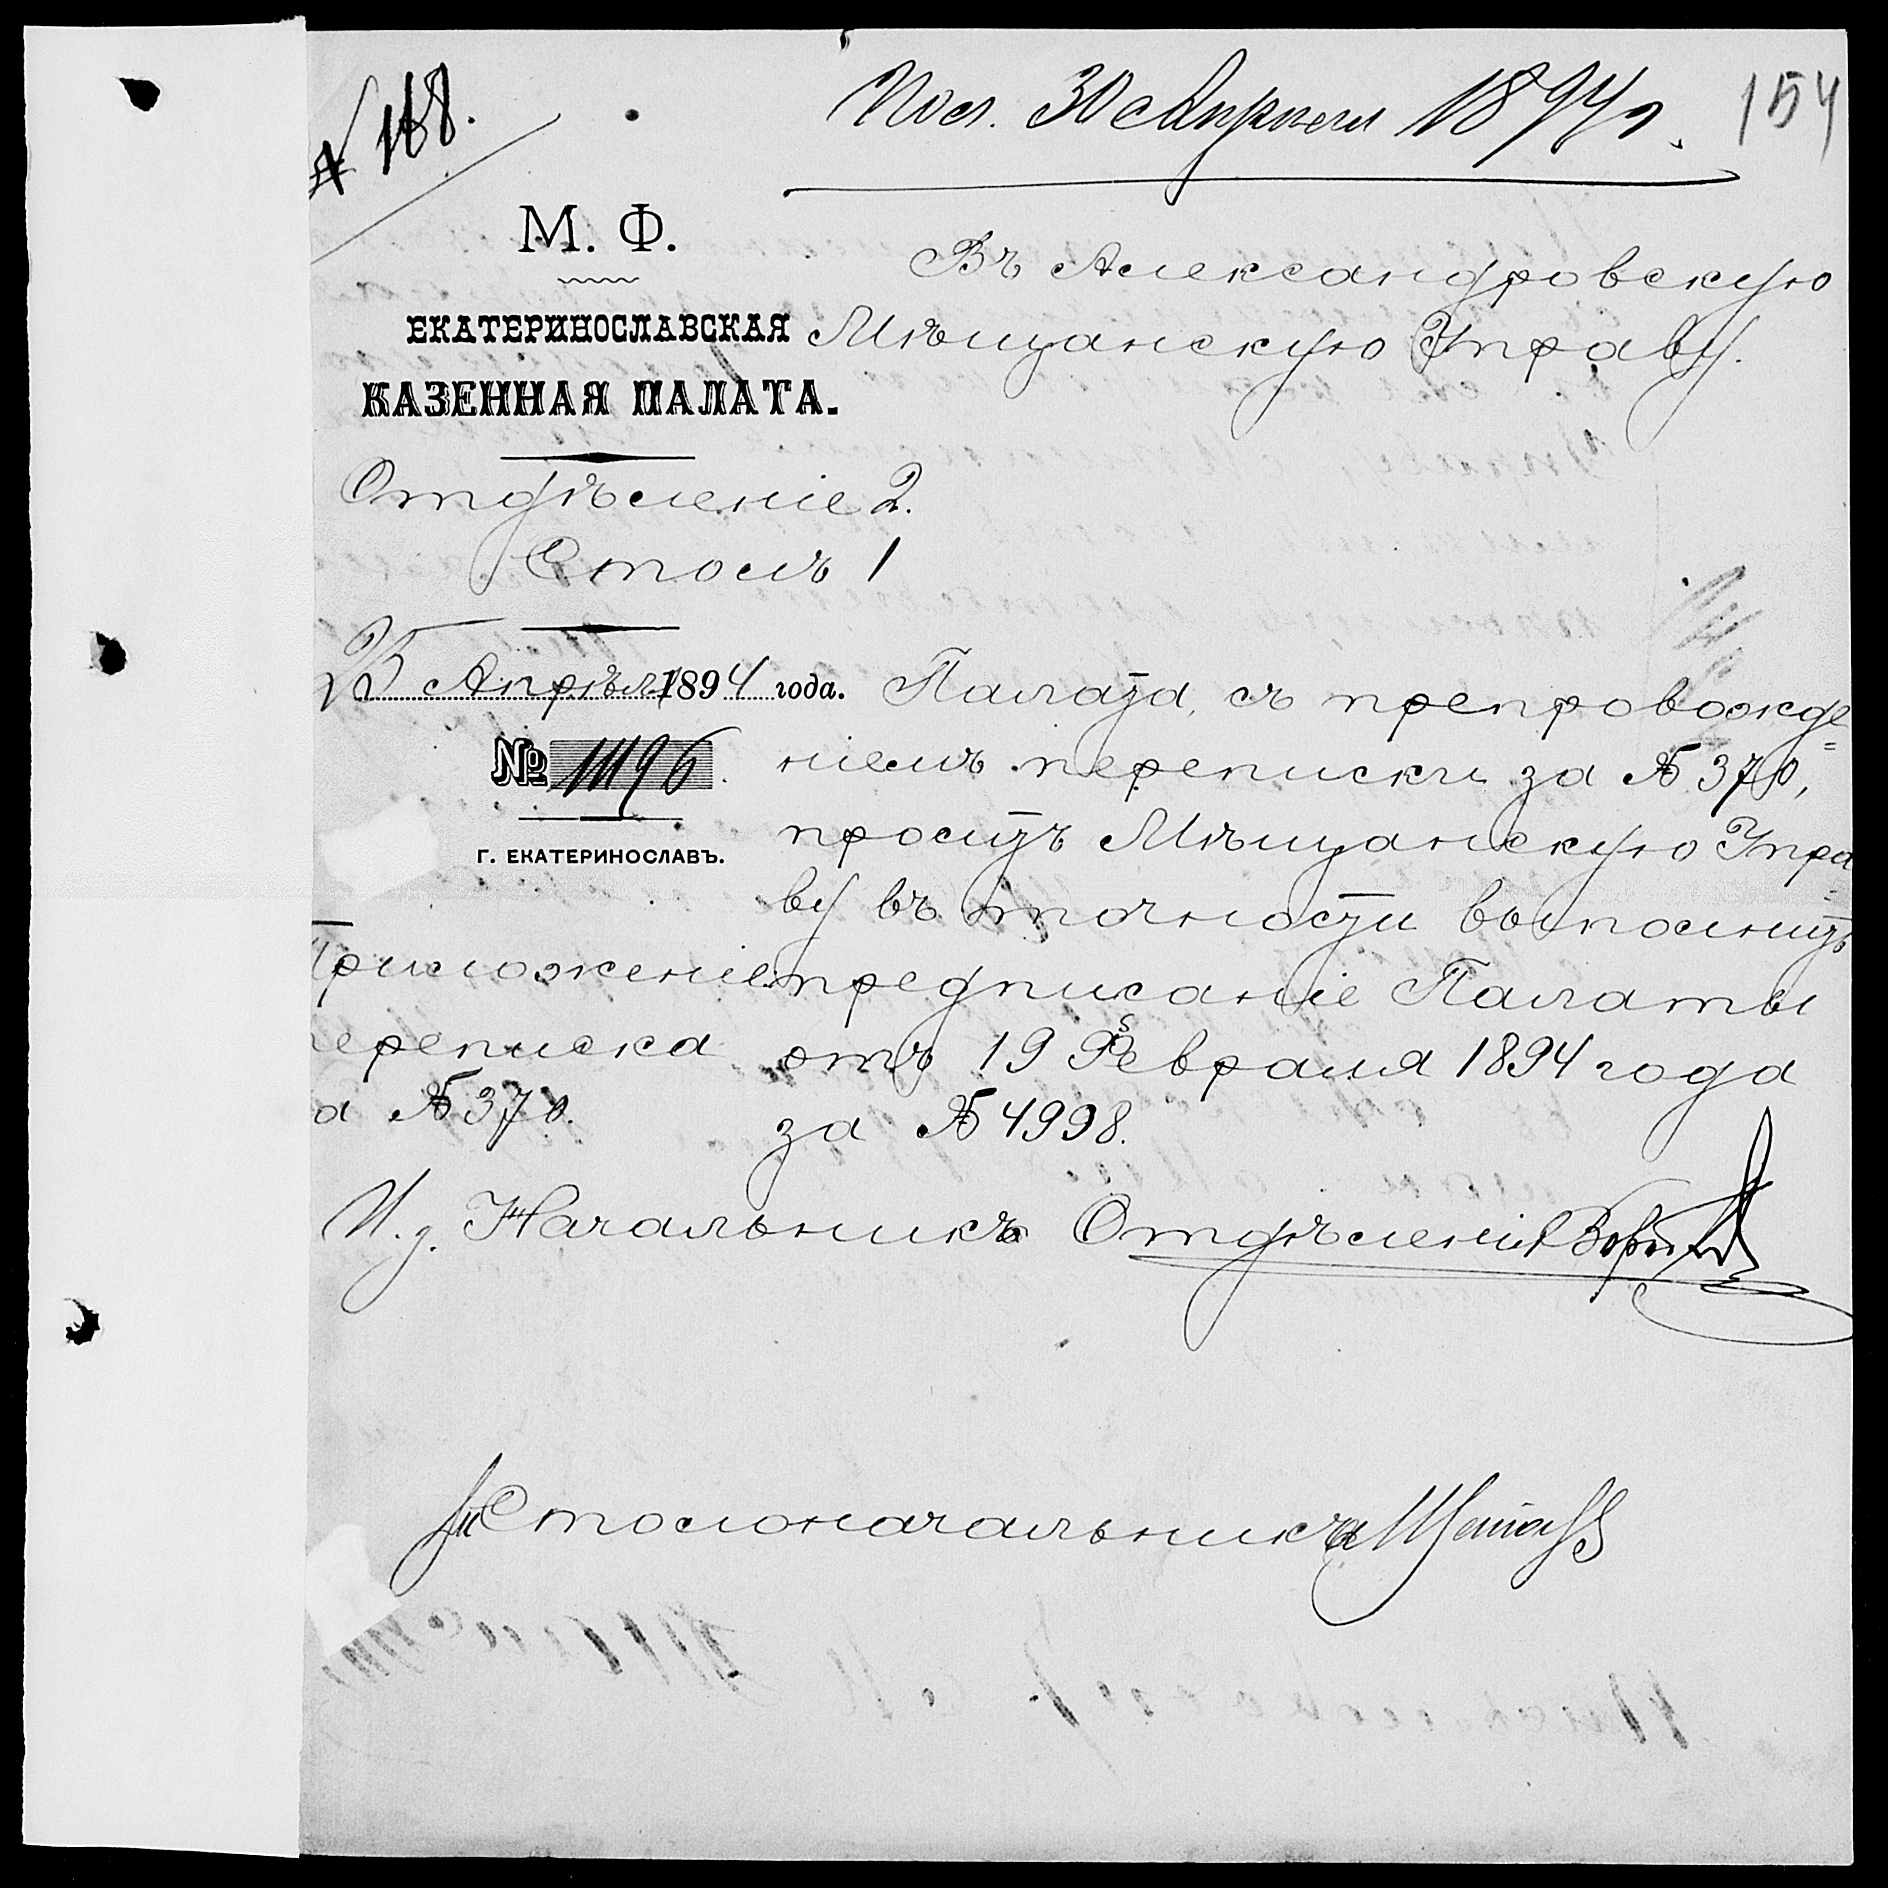 № 168.
Пол. 30 Апреля 1894 г.
154
М. Ф.
ЕКАТЕРИНОСЛАВСКАЯ
КАЗЕННАЯ ПАЛАТА.
Отдѣленіе 2.
Столъ 1
25 Апрѣля 1894 года.
№ 11196.
Г. ЕКАТЕРИНОСЛАВЪ.
Приложеніе:
переписка
за № 370.
Въ Александровскую
Мѣщанскую Управу.
Палата, съ препровожде=
ніемъ переписки за № 370,
проситъ Мѣщанскую Упра=
ву въ точности выполнить
предписаніе Палаты
отъ 19 Февраля 1894 года
за № 4998.
И. д. Начальника Отдѣленія
Столоначальника